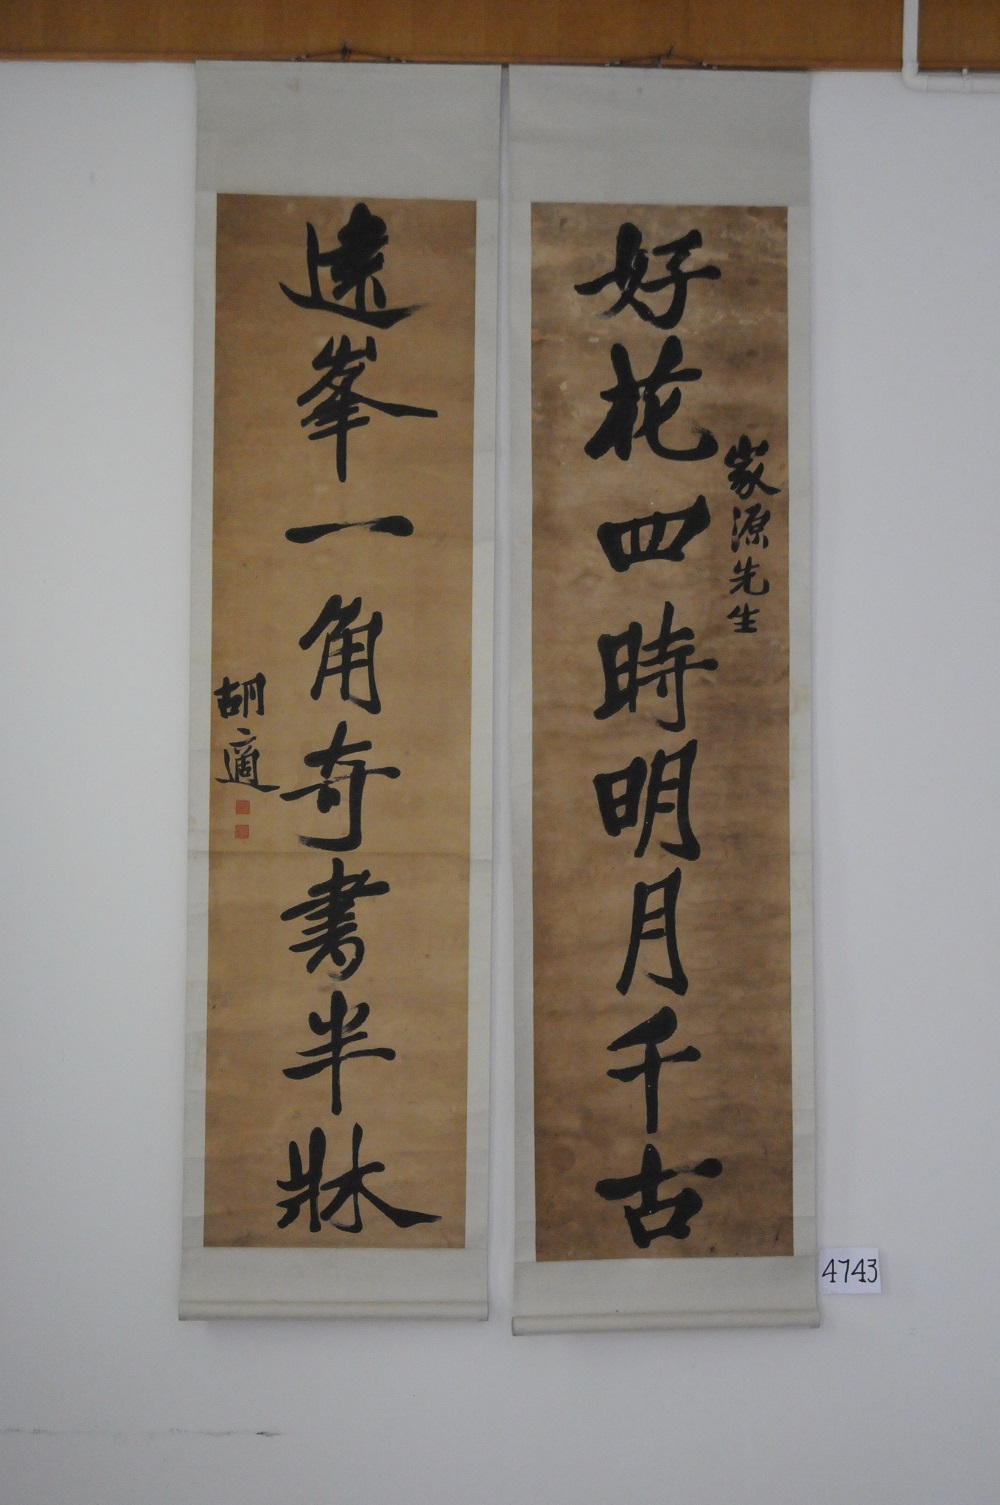 好花四時明月千古
家源先生
遠峯一角奇書半牀
胡適
4743